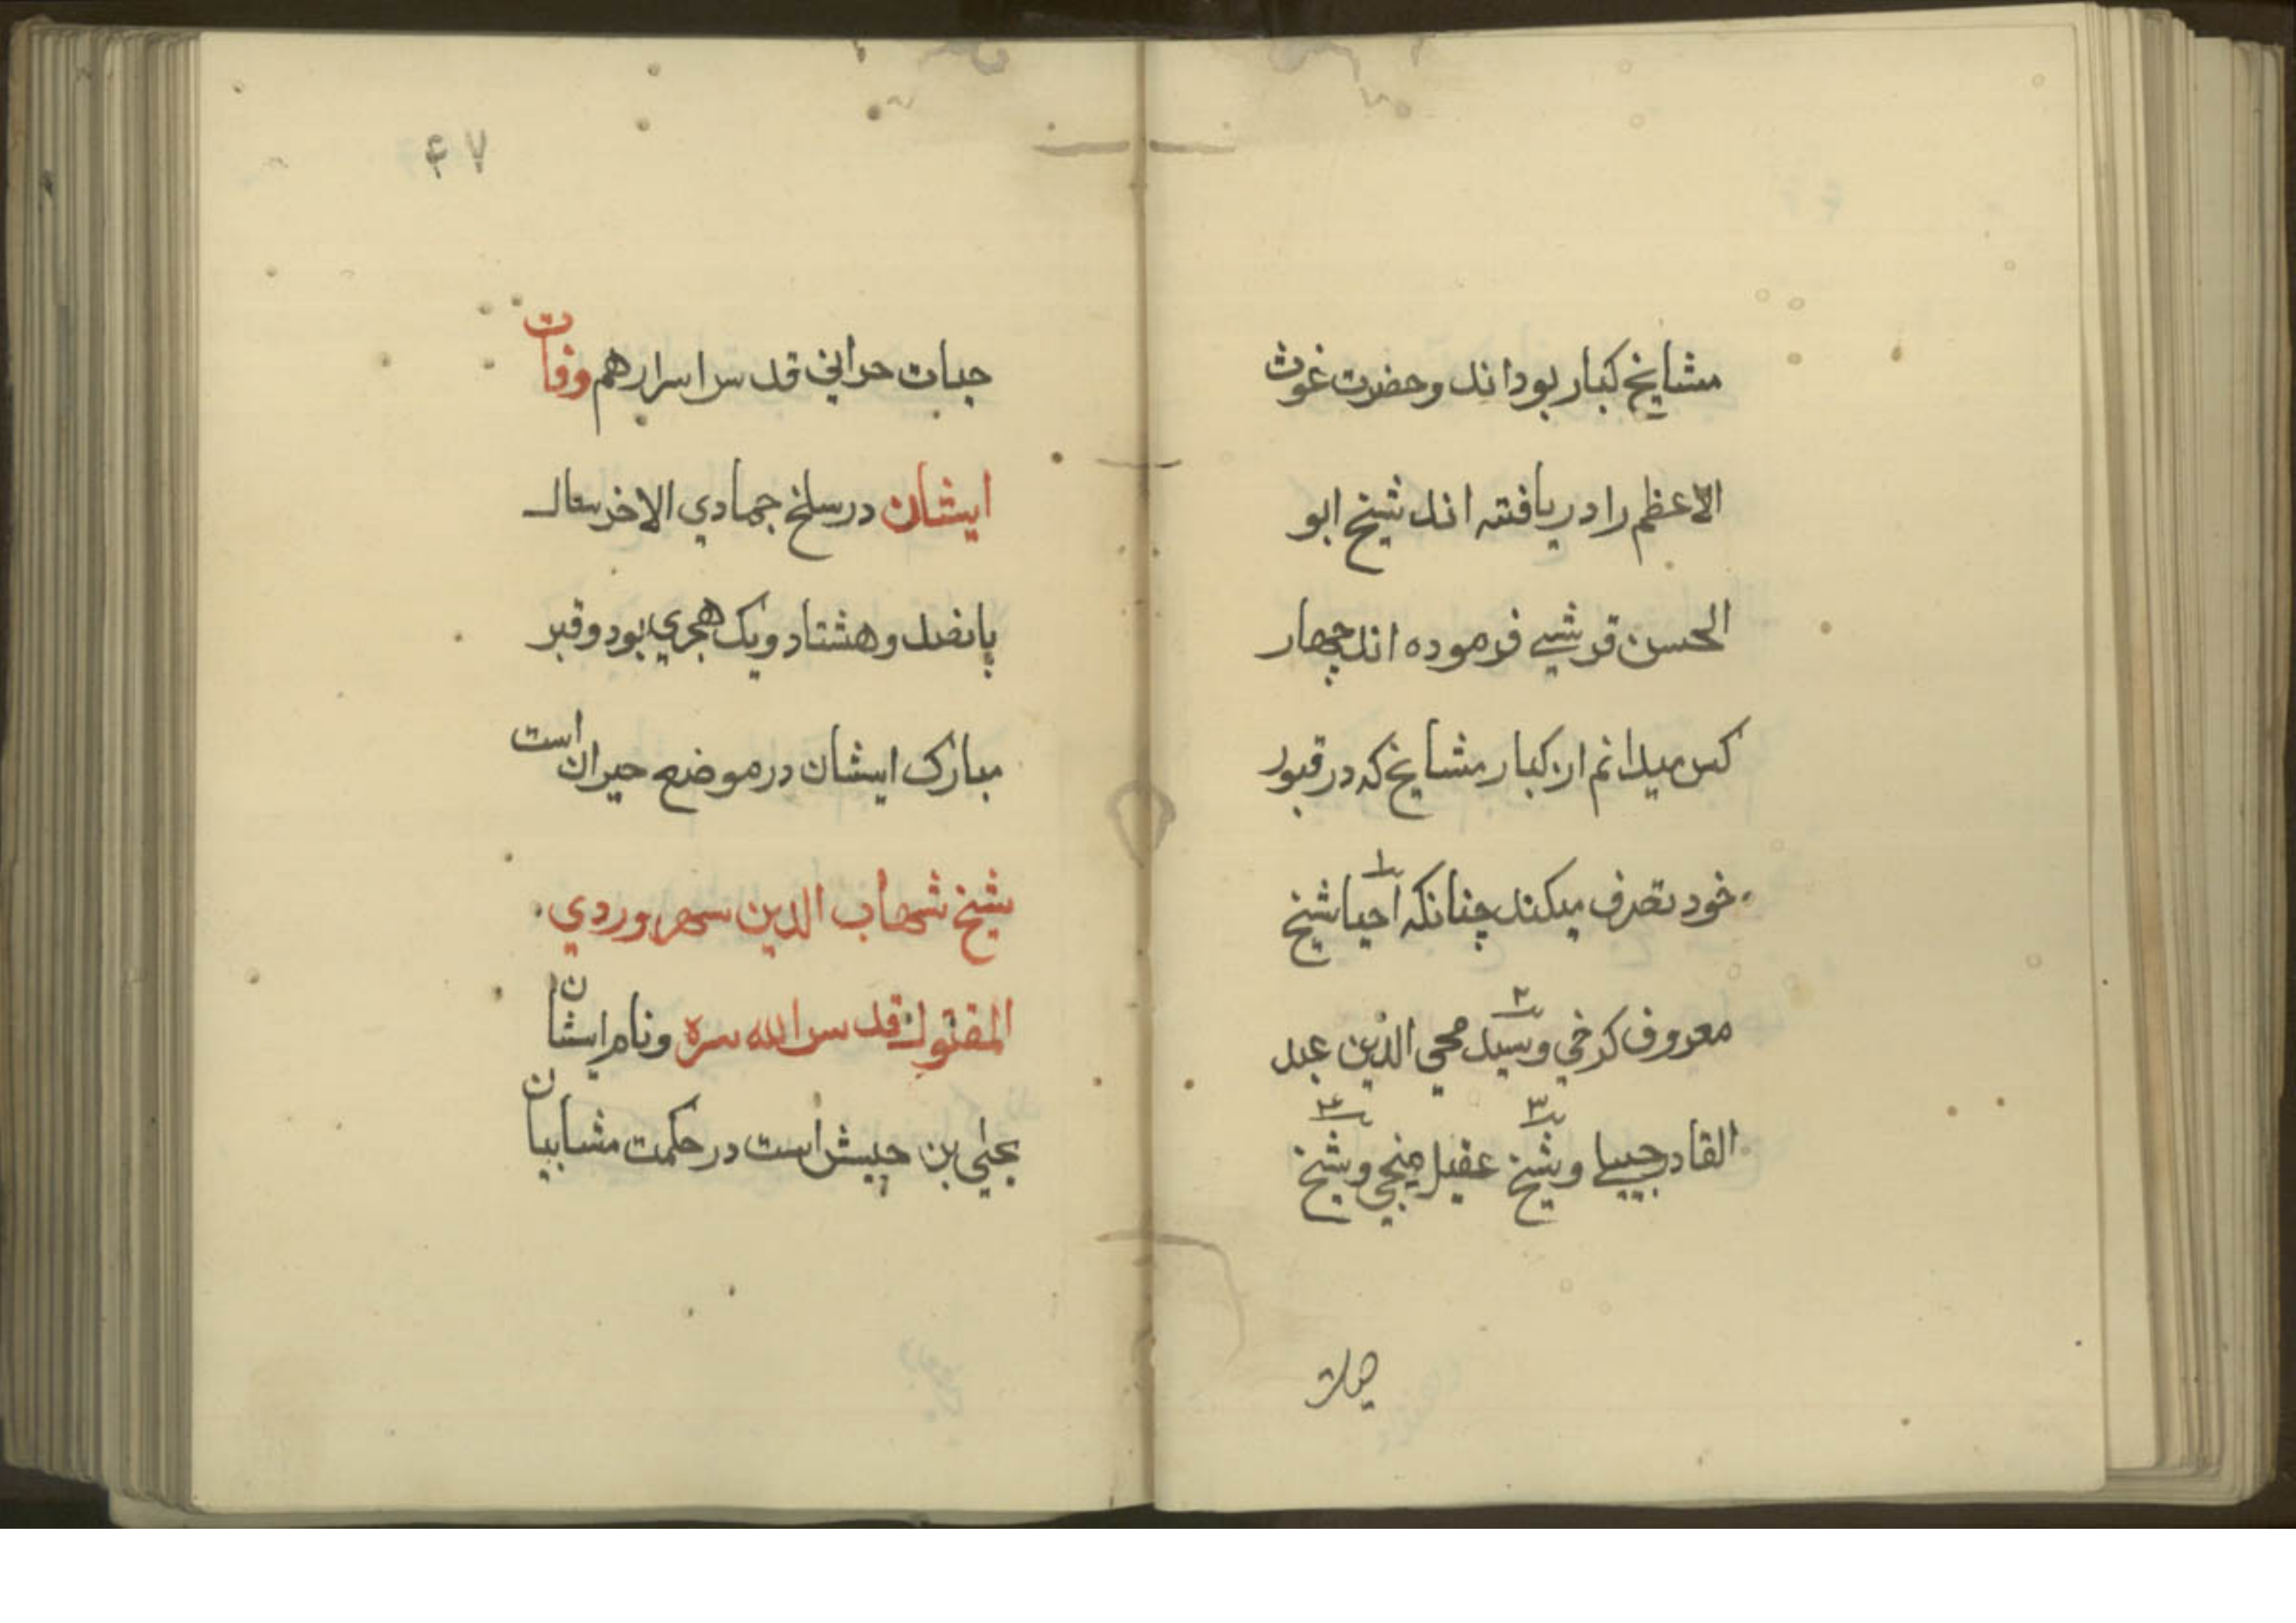 مشایخ کبار بوداند و حضرت غوث
الاعظم را دریافته اند شیخ ابو
الحسن قرشی فرموده اند چهار
کس میدانم از کبار مشایخ که در قبور
خود تصرف میکنند چنانکه احیا شیخ
۱
معروف کرخی و سید محی الدین عبد
۲
القادر جیلی و شیخ عقیل منجی و شیخ
۳ ۴
۴۷
جبات حرانی قدس اسرارهم وفات
ایشان در سلخ جمادي الاخر سال
پانصد و هشتاد و یک هجري بود و قبر
مبارک ایشان در موضع حیران است
شیخ شهاب الدین سهروردي
المقتول قدس الله سره و نام ایشان
یحیی بن حبیش است در حکمت مشاییان